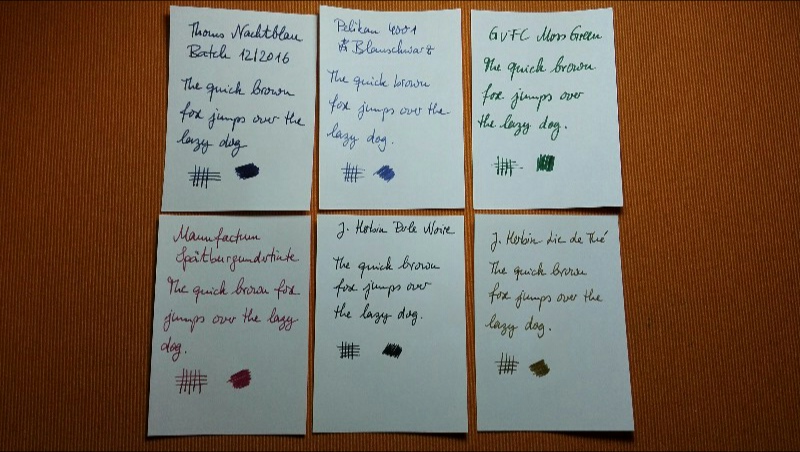 Thoms Nachtblau
Batch 12/2016
The quick brown
fox jumps over the
lazy dog
Pelikan 4001
Blauschwarz
The quick brown
fox jumps over the
lazy dog.
GvFC Moss Green
The quick brown
fox jumps over
the lazy dog.
Manufactum
Spätburgundertinte
The quick brown fox
jumps over the lazy
dog.
J. Herbin Perle Noire
The quick brown
fox jumps over
the lazy dog.
J. Herbin Lie de Thé
The quick brown
fox jumps over the
lazy dog.